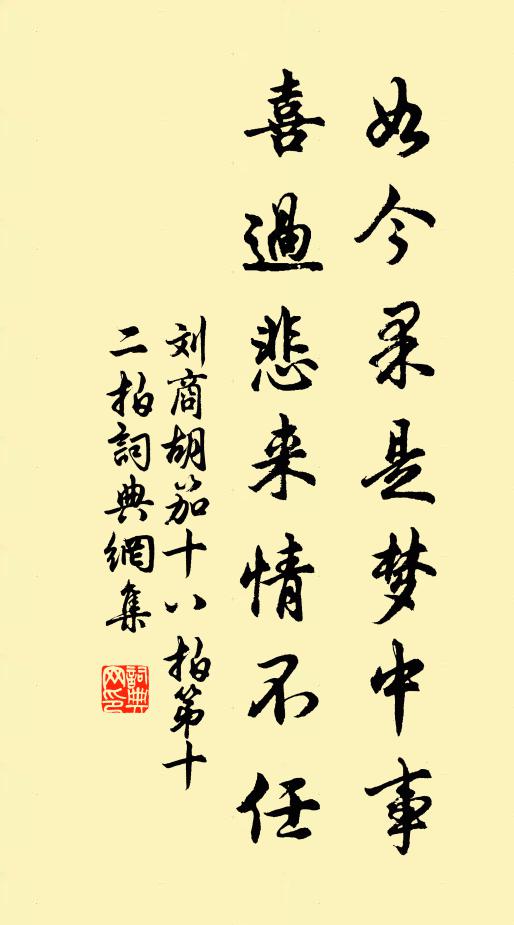 如今果是梦中事
喜過悲来情不任
刘商胡笳十八拍第十
二拍詞典網集
詞典网印